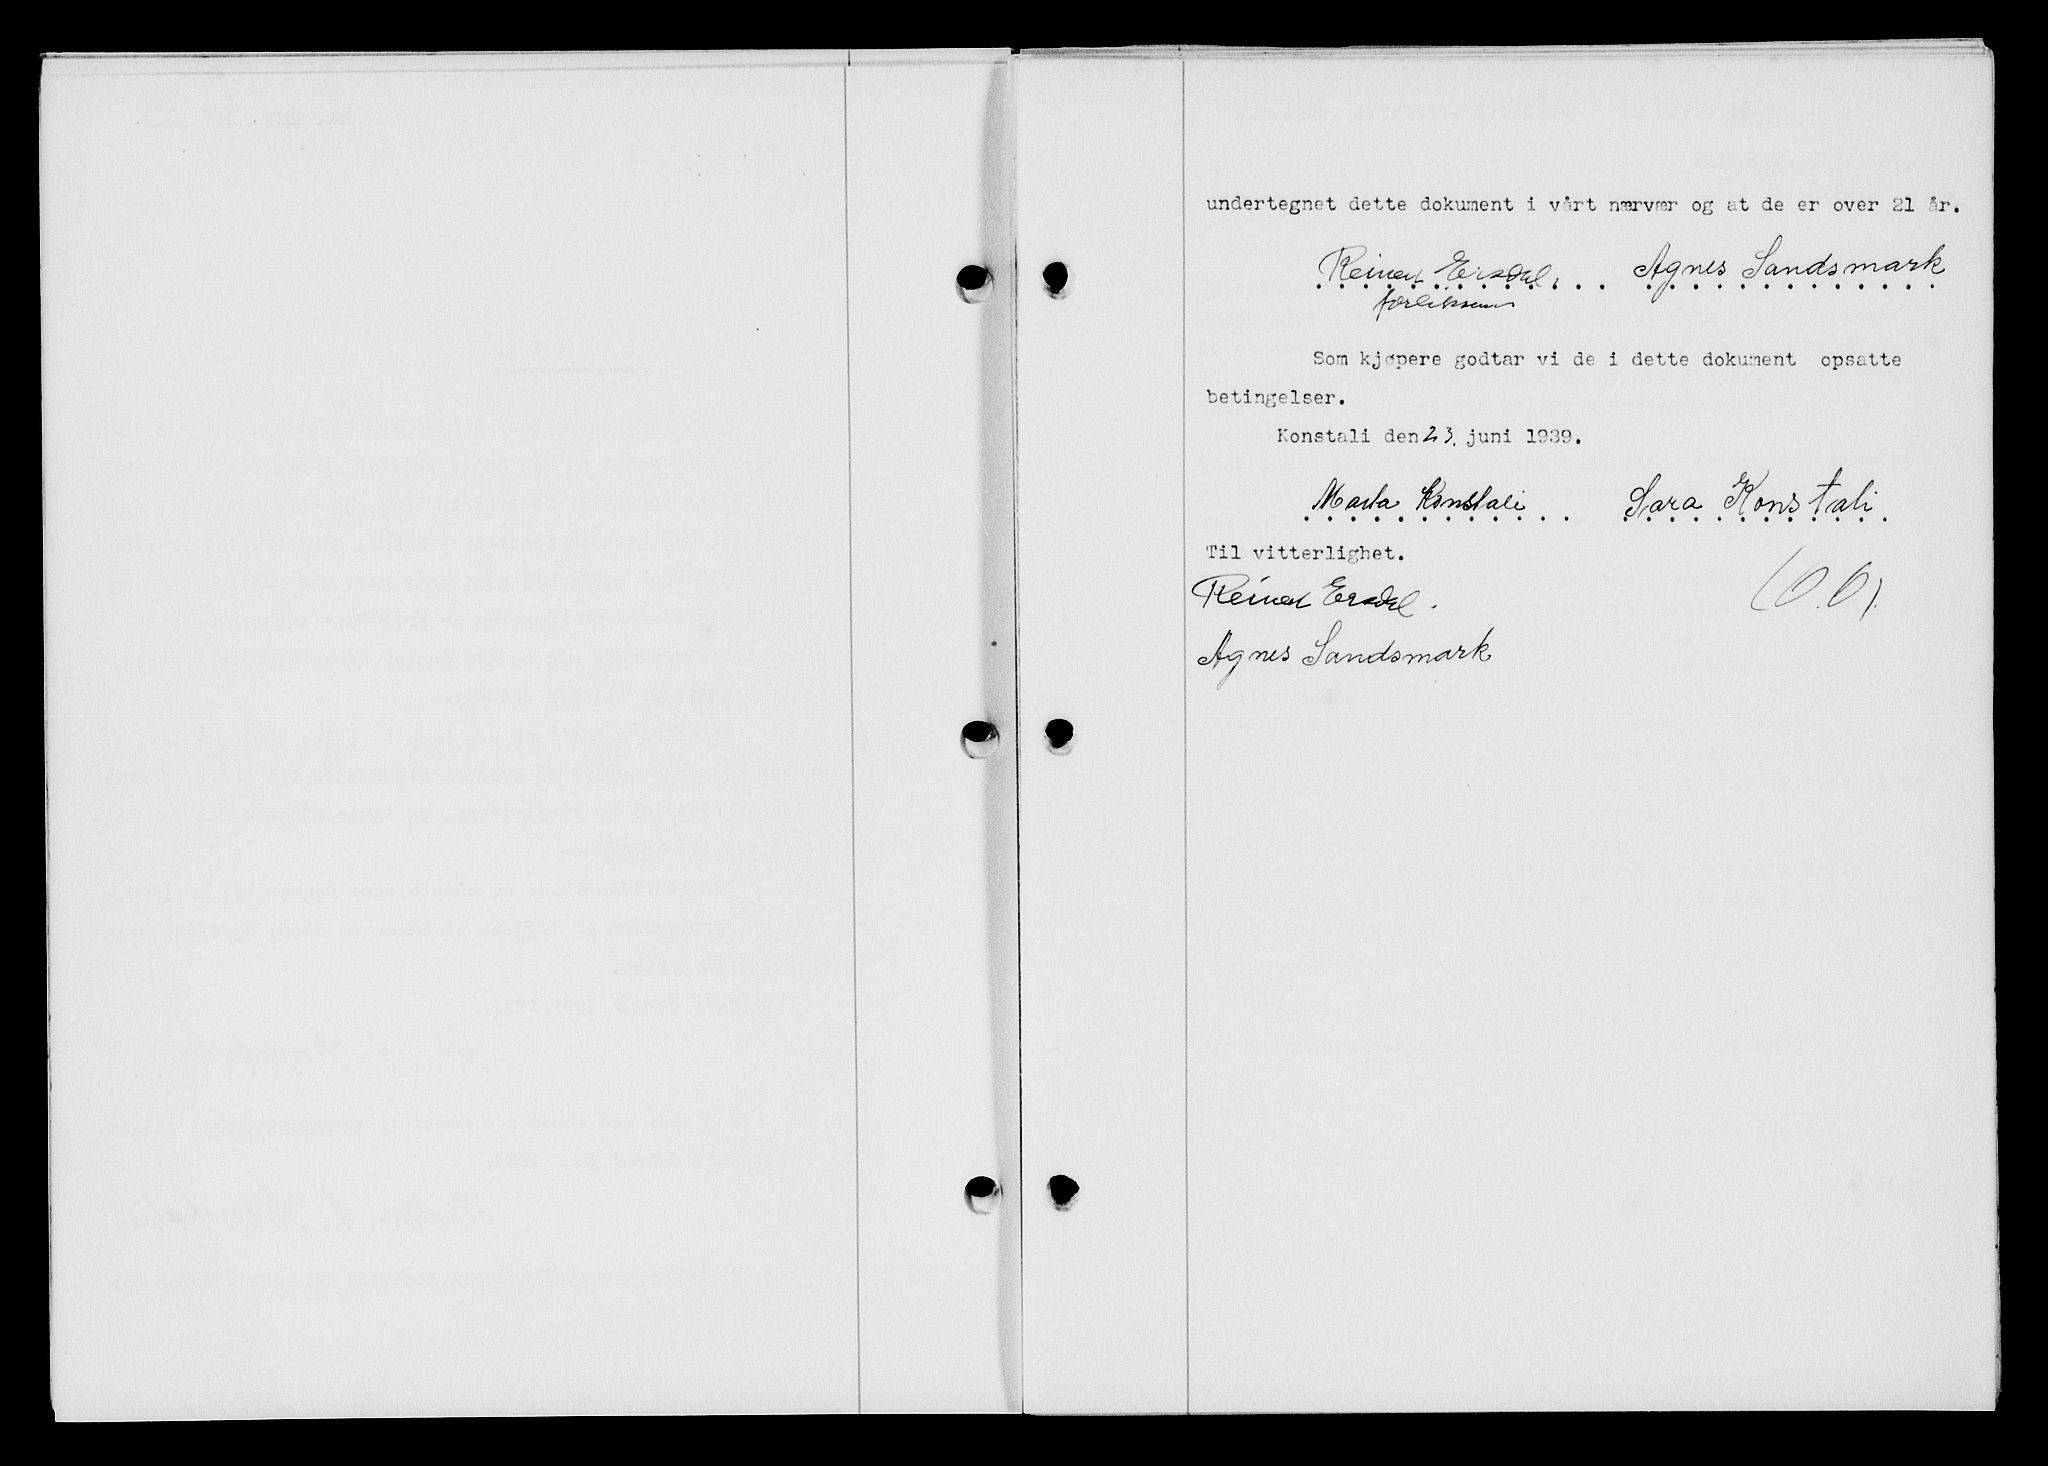 undertegnet dette dokument i vårt nærvær og at de er over 21 år.
Reinert Ersdal. Agnes Sandsmark
Som kjøpere godtar vi de i dette dokument opsatte
betingelser.
Konstali den 23. juni 1939.
Marta Konstali Sara Konstali
Til vitterlighet.
Reinert Ersdal.
Agnes Sandsmark